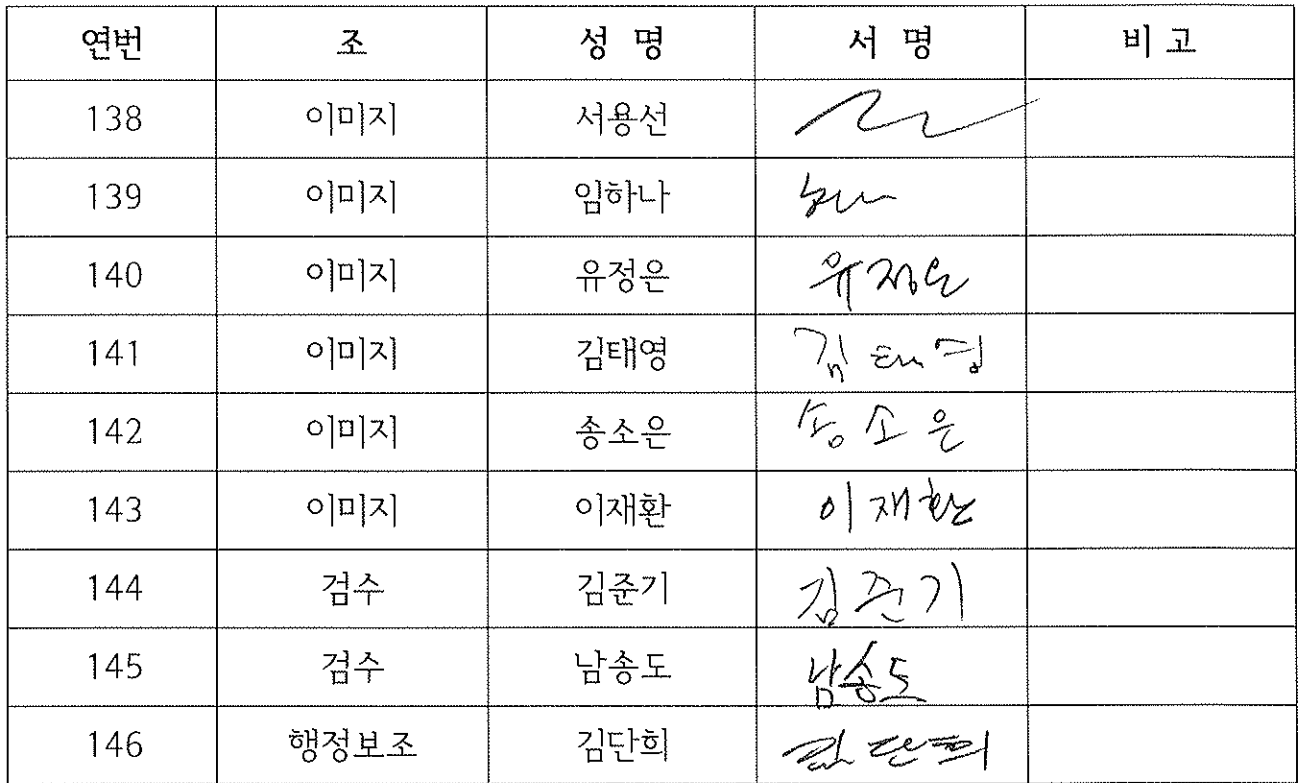 연번 조 성 명 서 명 비 고
138 이미지 서용선
139 이미지 임하나
140 이미지 유정은 유정은
141 이미지 김태영 김태영
142 이미지 송소은 송소은
143 이미지 이재환 이재환
144 검수 김준기 김준기
145 검수 남송도 남송도
146 행정보조 김단희 김단희